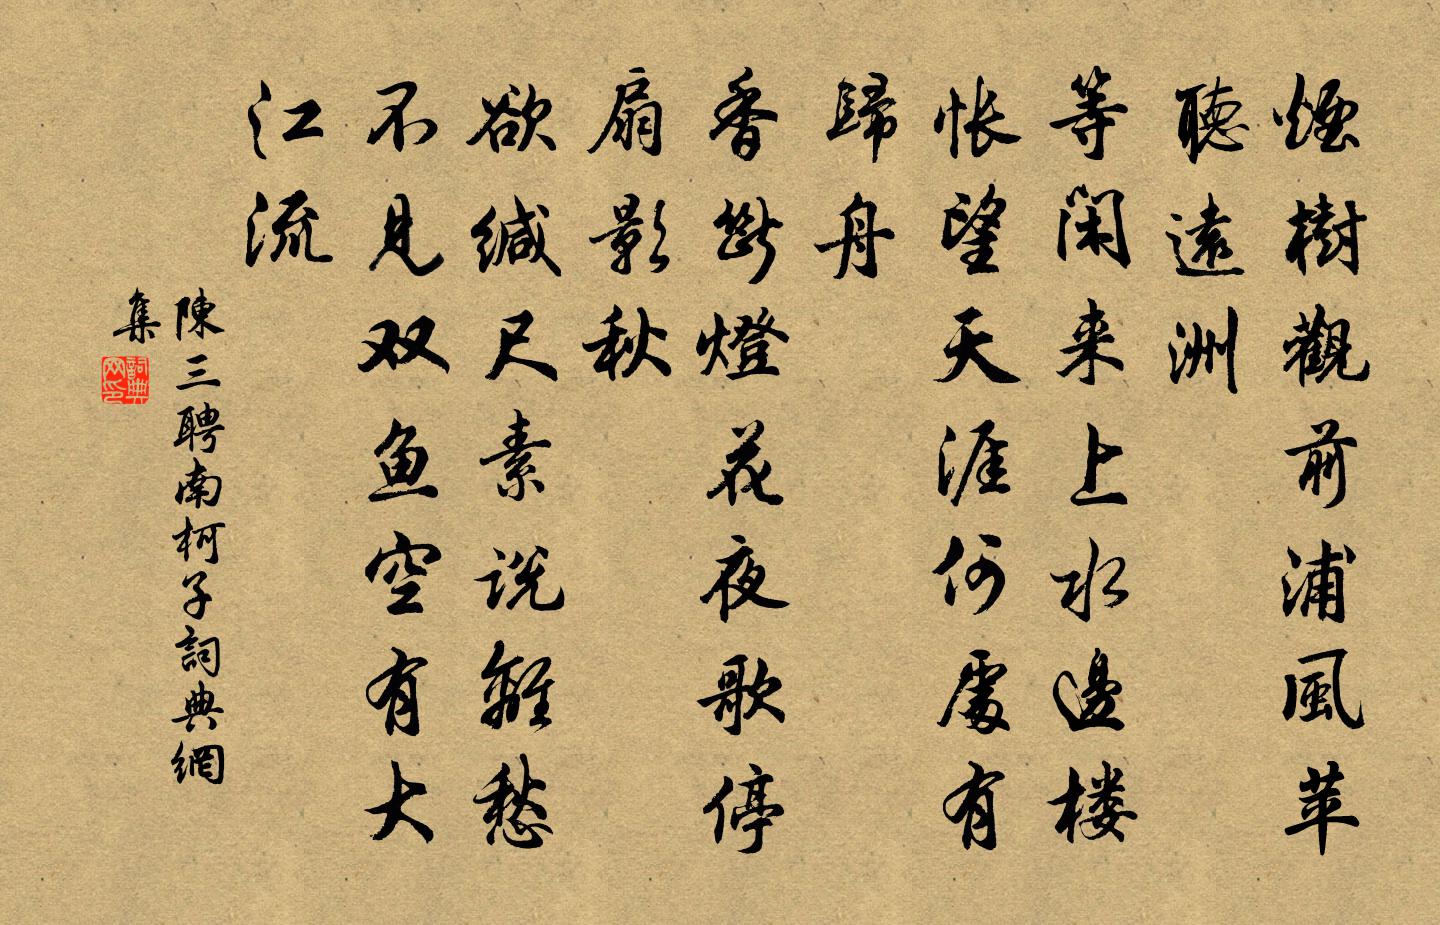 煙樹觀前浦風苹
聽遠洲
等閑来上水邊楼
怅望天涯何處有
歸舟
香斷燈花夜歌停
扇影秋
欲缄尺素说離愁
不见双鱼空有大
江流
陳三聘南柯子詞典網
集
詞典网印